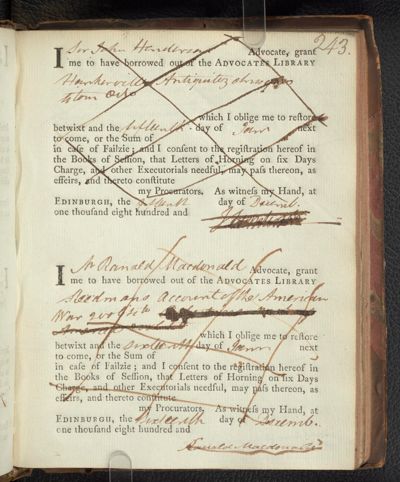 243.
I Sir John Henderson Advocate, grant
me to have borrowed out of the ADVOCATES LIBRARY
Hawkesville Antiquitez
which I oblige me to restore
betwixt and the day of Janry next
to come, or the Sum of
in case of Failzie; and I consent to the registration hereof in
the Books of Session, that Letters of Horning on six Days
Charge, and other Executorials needful, may pass thereon, as
effeirs, and thereto constitute
my Procurators. As witness my Hand, at
EDINBURGH, the day of Decemb.
one thousand eight hundred and
I Mr Ranald Macdonald Advocate, grant
me to have borrowed out of the ADVOCATES LIBRARY
Stedmans Account of the American
War 2 vol 4to
which I oblige me to restore
betwixt the sixteenth day of Janry next
to come, or the Sum of
in case of Failzie; and I consent to the registration hereof in
the Books of Session, that Letters of Horning on six Days
Charge, and other Executorials needful, may pass thereon, as
effeirs, and thereto constitute
my Procurators. As witness my Hand, at
EDINBURGH, the sixteenth day of Decemb.
one thousand eight hundred and
Ranald Macdonald